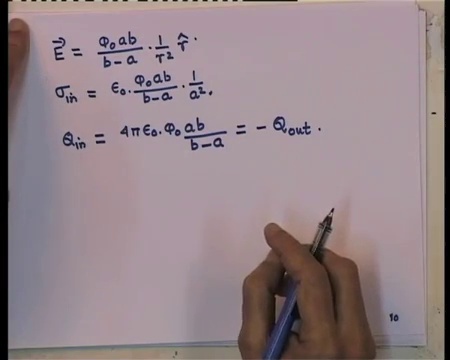 E⃗ = φ₀ab/(b-a) · 1/r² r̂.
σin = ε₀. φ₀ab/(b-a) · 1/a².
Qin = 4πε₀. φ₀ab/(b-a) = - Qout.
10